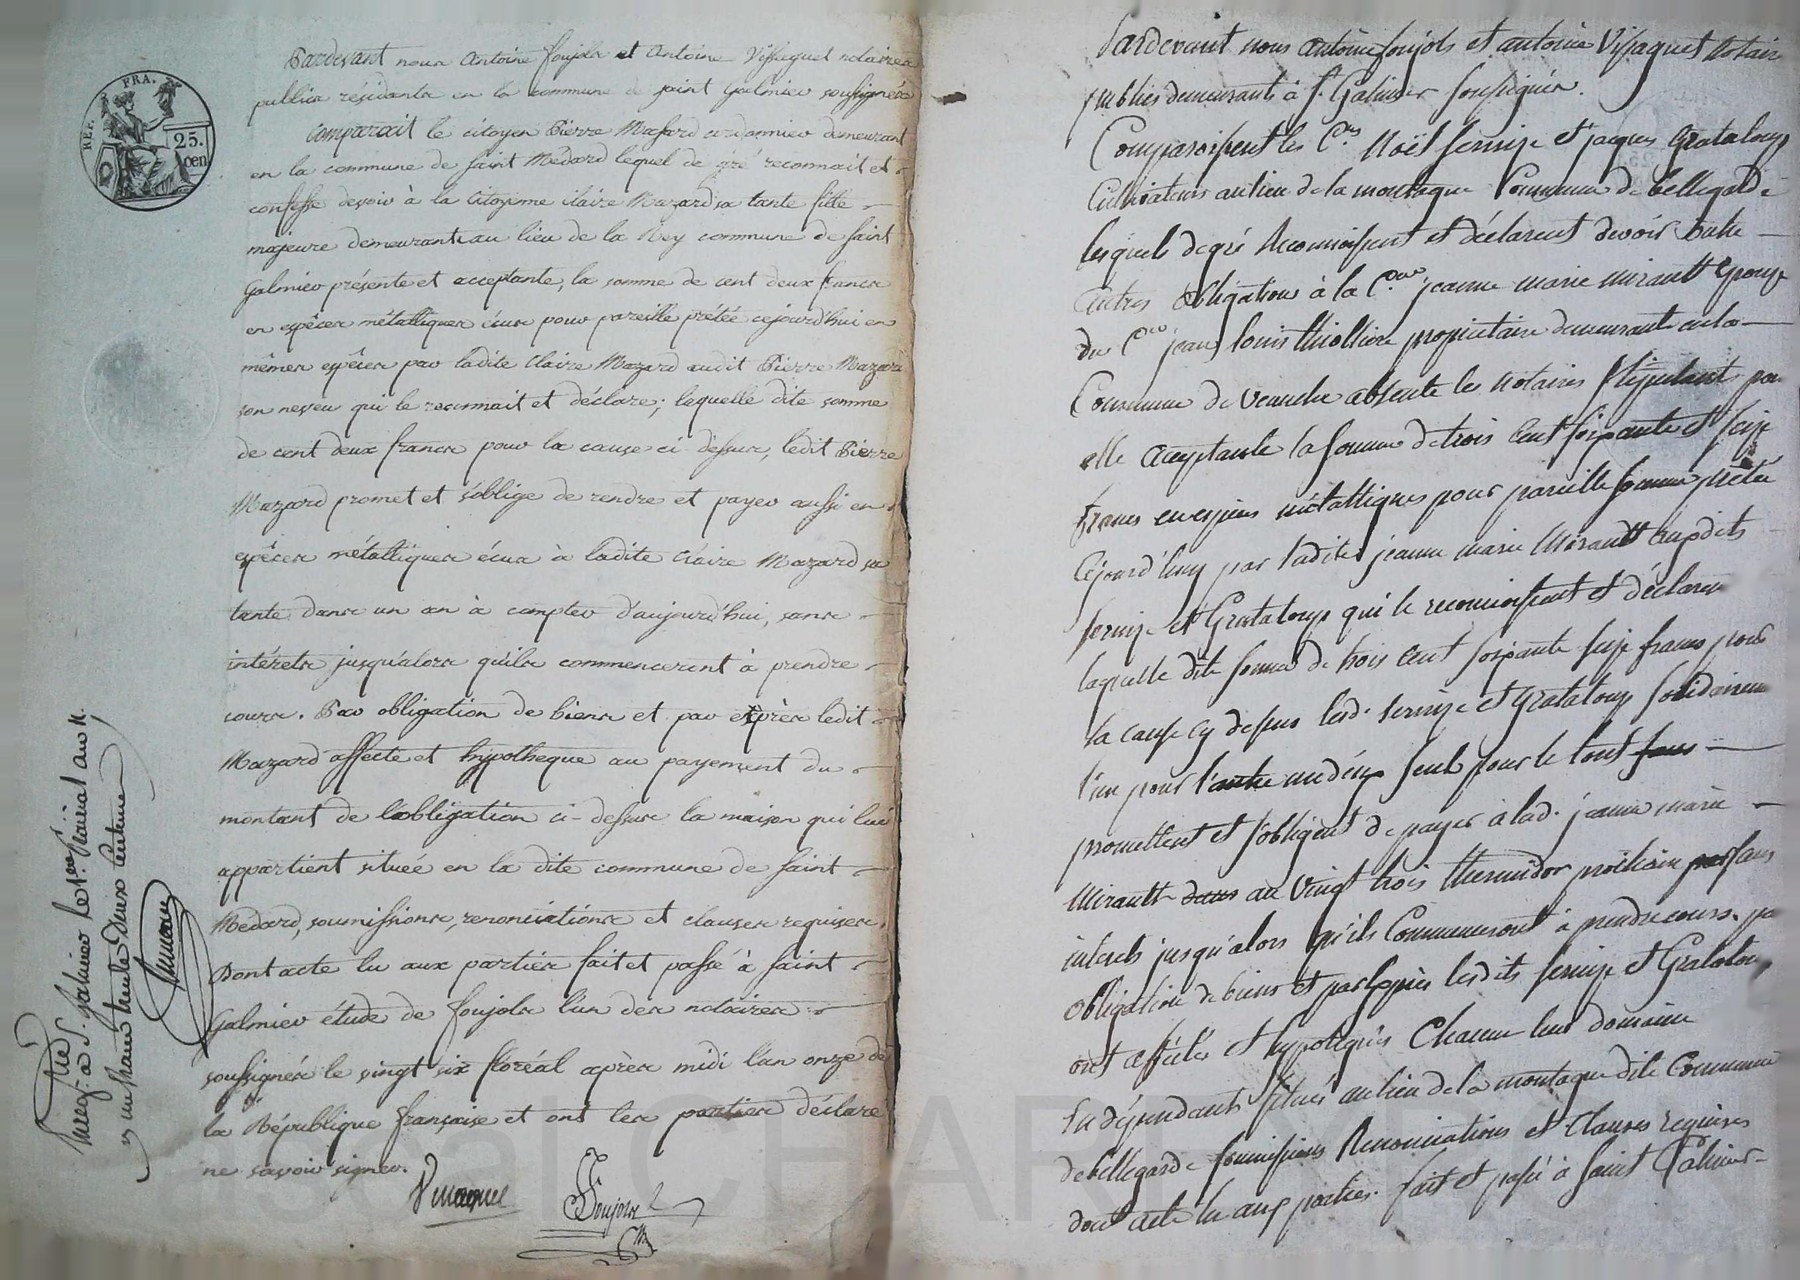 REP. FRA.
25.
cen.
Pardevant nous Antoine Foujols et Antoine Vissaguet notaires
publics résidants en la commune de saint Galmier soussignés
Comparait le citoyen Pierre Mazard cordonnier demeurant
en la commune de saint Médard lequel de gré reconnait et
confesse devoir à la Citoyenne Claire Mazard sa tante fille
majeure demeurante au lieu de la Rey commune de saint
Galmier présente et acceptante, la somme de cent deux francs
en espèces métalliques écus pour pareille prêtée cejourd'hui en
mêmes espèces par ladite Claire Mazard audit Pierre Mazard
son neveu qui le reconnait et déclare; lequelle dite somme
de cent deux francs pour la cause ci dessus, ledit Pierre
Mazard promet et s'oblige de rendre et payer aussi en
espèces métalliques écus à ladite Claire Mazard sa
tante dans un an à compter d'aujourd'hui, sans
intérets jusqu'alors qu'ils commenceront à prendre
cours. Par obligation de biens et par exprès ledit
Mazard affecte et hypotheque au payement du
montant de l'obligation ci-dessus la maison qui lui
appartient située en la dite commune de saint
Médard, soumissions, renonciations et clauses requises.
Dont acte lu aux parties fait et passé à saint
Galmier étude de Foujols l'un des notaires
soussignés le vingt six floréal après midi l'an onze de
la République française et ont les parties déclaré
ne savoir signer.
Vissaguet Foujols
Enreg. à St. Galmier le 1.er Prairial an 11.
un franc trente deux centimes
Pardevant nous antoine foujols et antoine Vissaguet Notaires
publics demeurants à St. Galmier soussignés.
Comparoissent les C.ns Noël ferrize et jacques Grataloup
Cultivateurs au lieu de la montagne Commune de bellegarde
lesquels de gré Reconnoissent et déclarent devoir outre
autres obligations à la C.enne jeanne marie mirault Epouse
du C.en jean louis thiolliere propriétaire demeurante en la
Commune de veauche absente les Notaires stipulant pour
elle acceptante la somme de trois Cent soixante et seize
francs en espèces métalliques pour pareille somme prêtée
Cejourd'huy par ladite jeanne marie Mirault auxdits
ferrize et Grataloup qui le reconnoissent et déclarent
laquelle dite somme de trois Cent soixante seize francs pour
la cause cy dessus lesd. ferrize et Grataloup solidairement
l'un pour l'autre un d'eux seul pour le tout sans
promettent et s'obligent de payer à lad. jeanne marie
Mirault dans au vingt trois thermidor prochain sans
interets jusqu'alors qu'ils Commenceront à prendre cours. par
obligation de biens et par exprès lesdits ferrize et Grataloup
ont affectés et hypotequés Chacun leur domaine
en dépendants situés au lieu de la montagne dite Commune
de bellegarde soumissions Renonciations et Clauses requises
dont acte lu aux parties. fait et passé à Saint Galmier